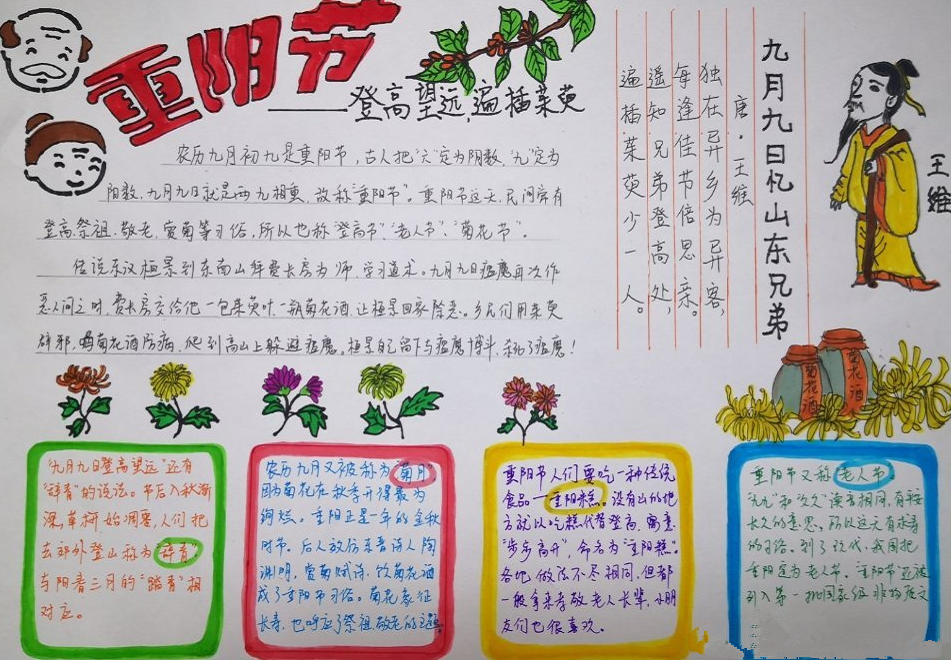 重阳节
——登高望远,遍插茱萸
农历九月初九是重阳节,古人把"六"定为阴数,"九"定为
阳数,九月九日就是两九相重,故称"重阳节"。重阳节这天,民间常有
登高、祭祖、敬老、赏菊等习俗,所以也称"登高节"、"老人节"、"菊花节"。
传说东汉桓景到东南山拜费长房为师,学习道术。九月九日瘟魔再次作
恶人间之时,费长房交给他一包茱萸叶,一瓶菊花酒,让桓景回家除恶。乡民们用茱萸
辟邪,喝菊花酒防病,爬到高山上躲避瘟魔。桓景自己留下与瘟魔博斗,杀死了瘟魔!
九月九日忆山东兄弟
唐·王维
独在异乡为异客,
每逢佳节倍思亲。
遥知兄弟登高处,
遍插茱萸少一人。
王维
菊花酒
菊花酒
"九月九日登高望远"还有
"辞青"的说法。节后入秋渐
深,草柯始凋零,人们把
去郊外登山称为"辞青",
与阳春三月的"踏青"相
对应。
农历九月又被称为"菊月"
因为菊花在秋季开得最为
绚烂。重阳正是一年的金秋
时节。后人放仿东晋诗人陶
渊明,赏菊赋诗,饮菊花酒
成了重阳节习俗。菊花象征
长寿,也呼应了祭祖敬老的主题。
重阳节人们要吃一种传统
食品—重阳糕。没有山的地
方就以吃糕代替登高,寓意
"步步高升",命名为"重阳糕"。
各地做法不尽相同,但都
一般拿来孝敬老人长辈,小朋
友们也很喜欢。
重阳节又称老人节。
"九九"和"久久"读音相同,有
长久的意思,所以这天有求寿
的习俗。到了现代,我国把
重阳定为老人节。重阳节还被
列入第一批国家级非物质文